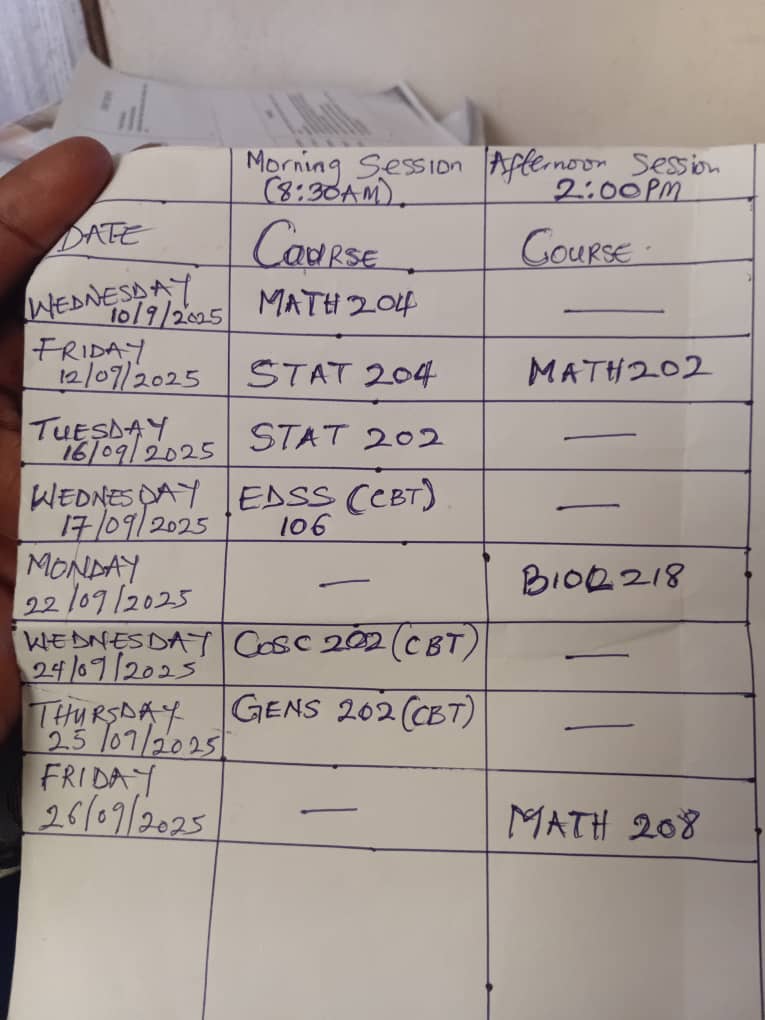 Morning Session Afternoon Session
(8:30AM) 2:00PM
DATE COURSE COURSE
WEDNESDAY MATH 204 —
10/9/2025
FRIDAY STAT 204 MATH 202
12/09/2025
TUESDAY STAT 202 —
16/09/2025
WEDNESDAY EDSS (CBT) —
17/09/2025 106
MONDAY — BIOL 218
22/09/2025
WEDNESDAY COSC 202 (CBT) —
24/09/2025
THURSDAY GENS 202 (CBT) —
25/09/2025
FRIDAY — MATH 208
26/09/2025